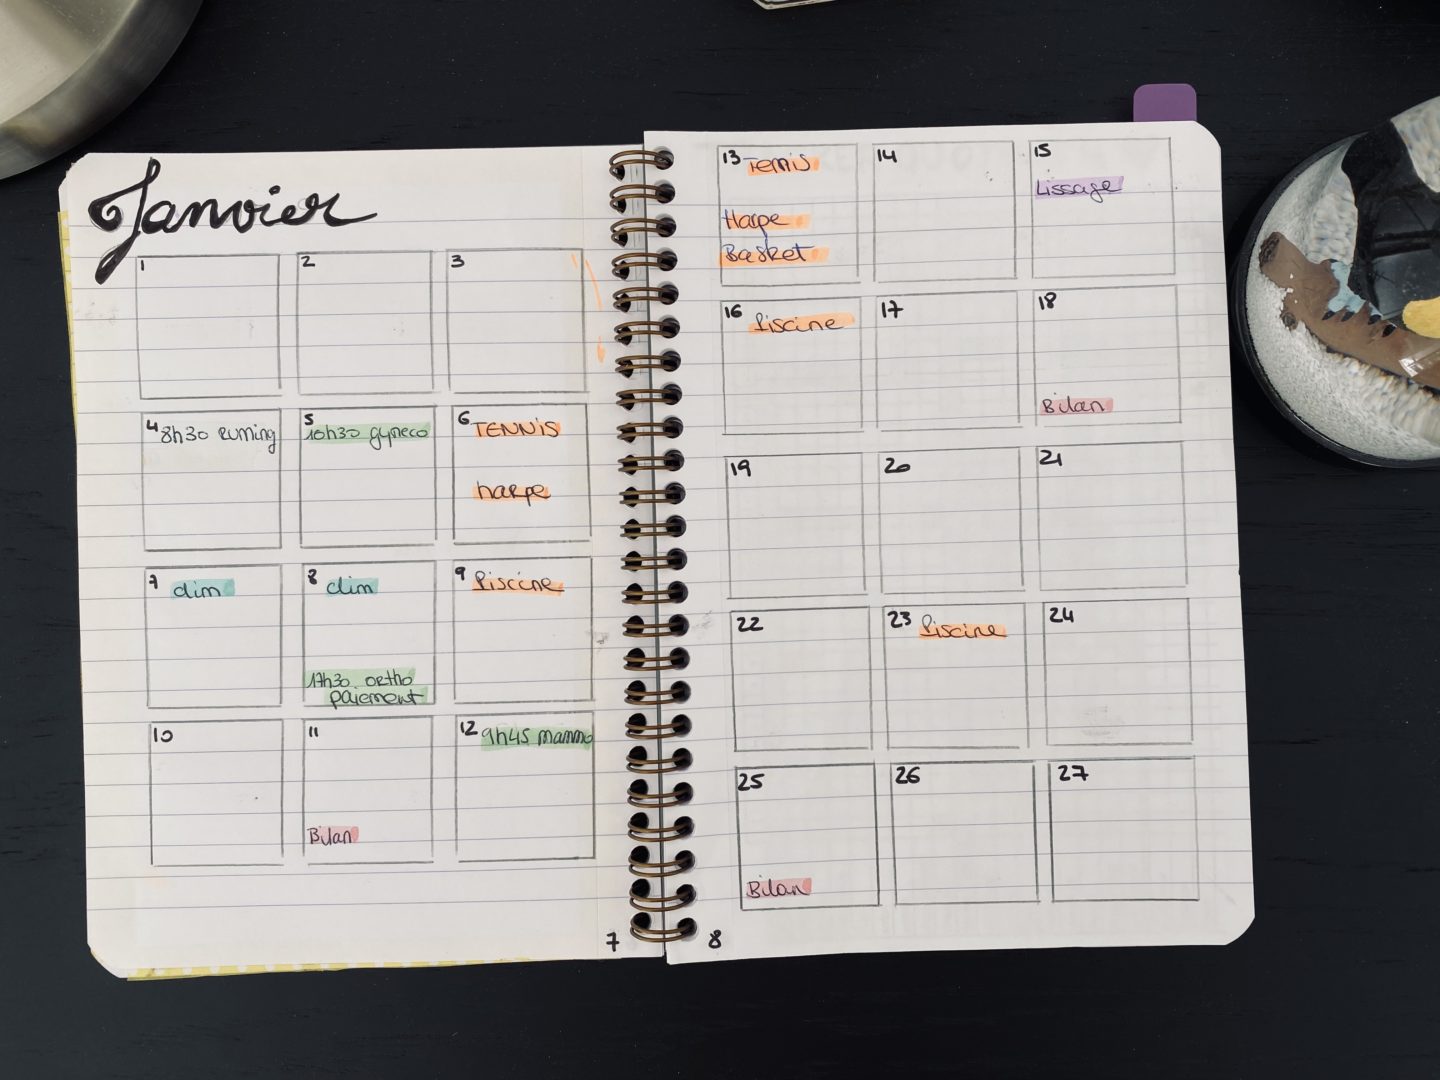 Janvier
1
2
3
4 8h30 running
5 10h30 gyneco
6 TENNIS
harpe
7 clim
8 clim
17h30 ortho
paiement
9 Piscine
10
11
Bilan
12 9h45 mammo
7
13 Tennis
Harpe
Basket
14
15
Lissage
16 Piscine
17
18
Bilan
19
20
21
22
23 Piscine
24
25
Bilan
26
27
8